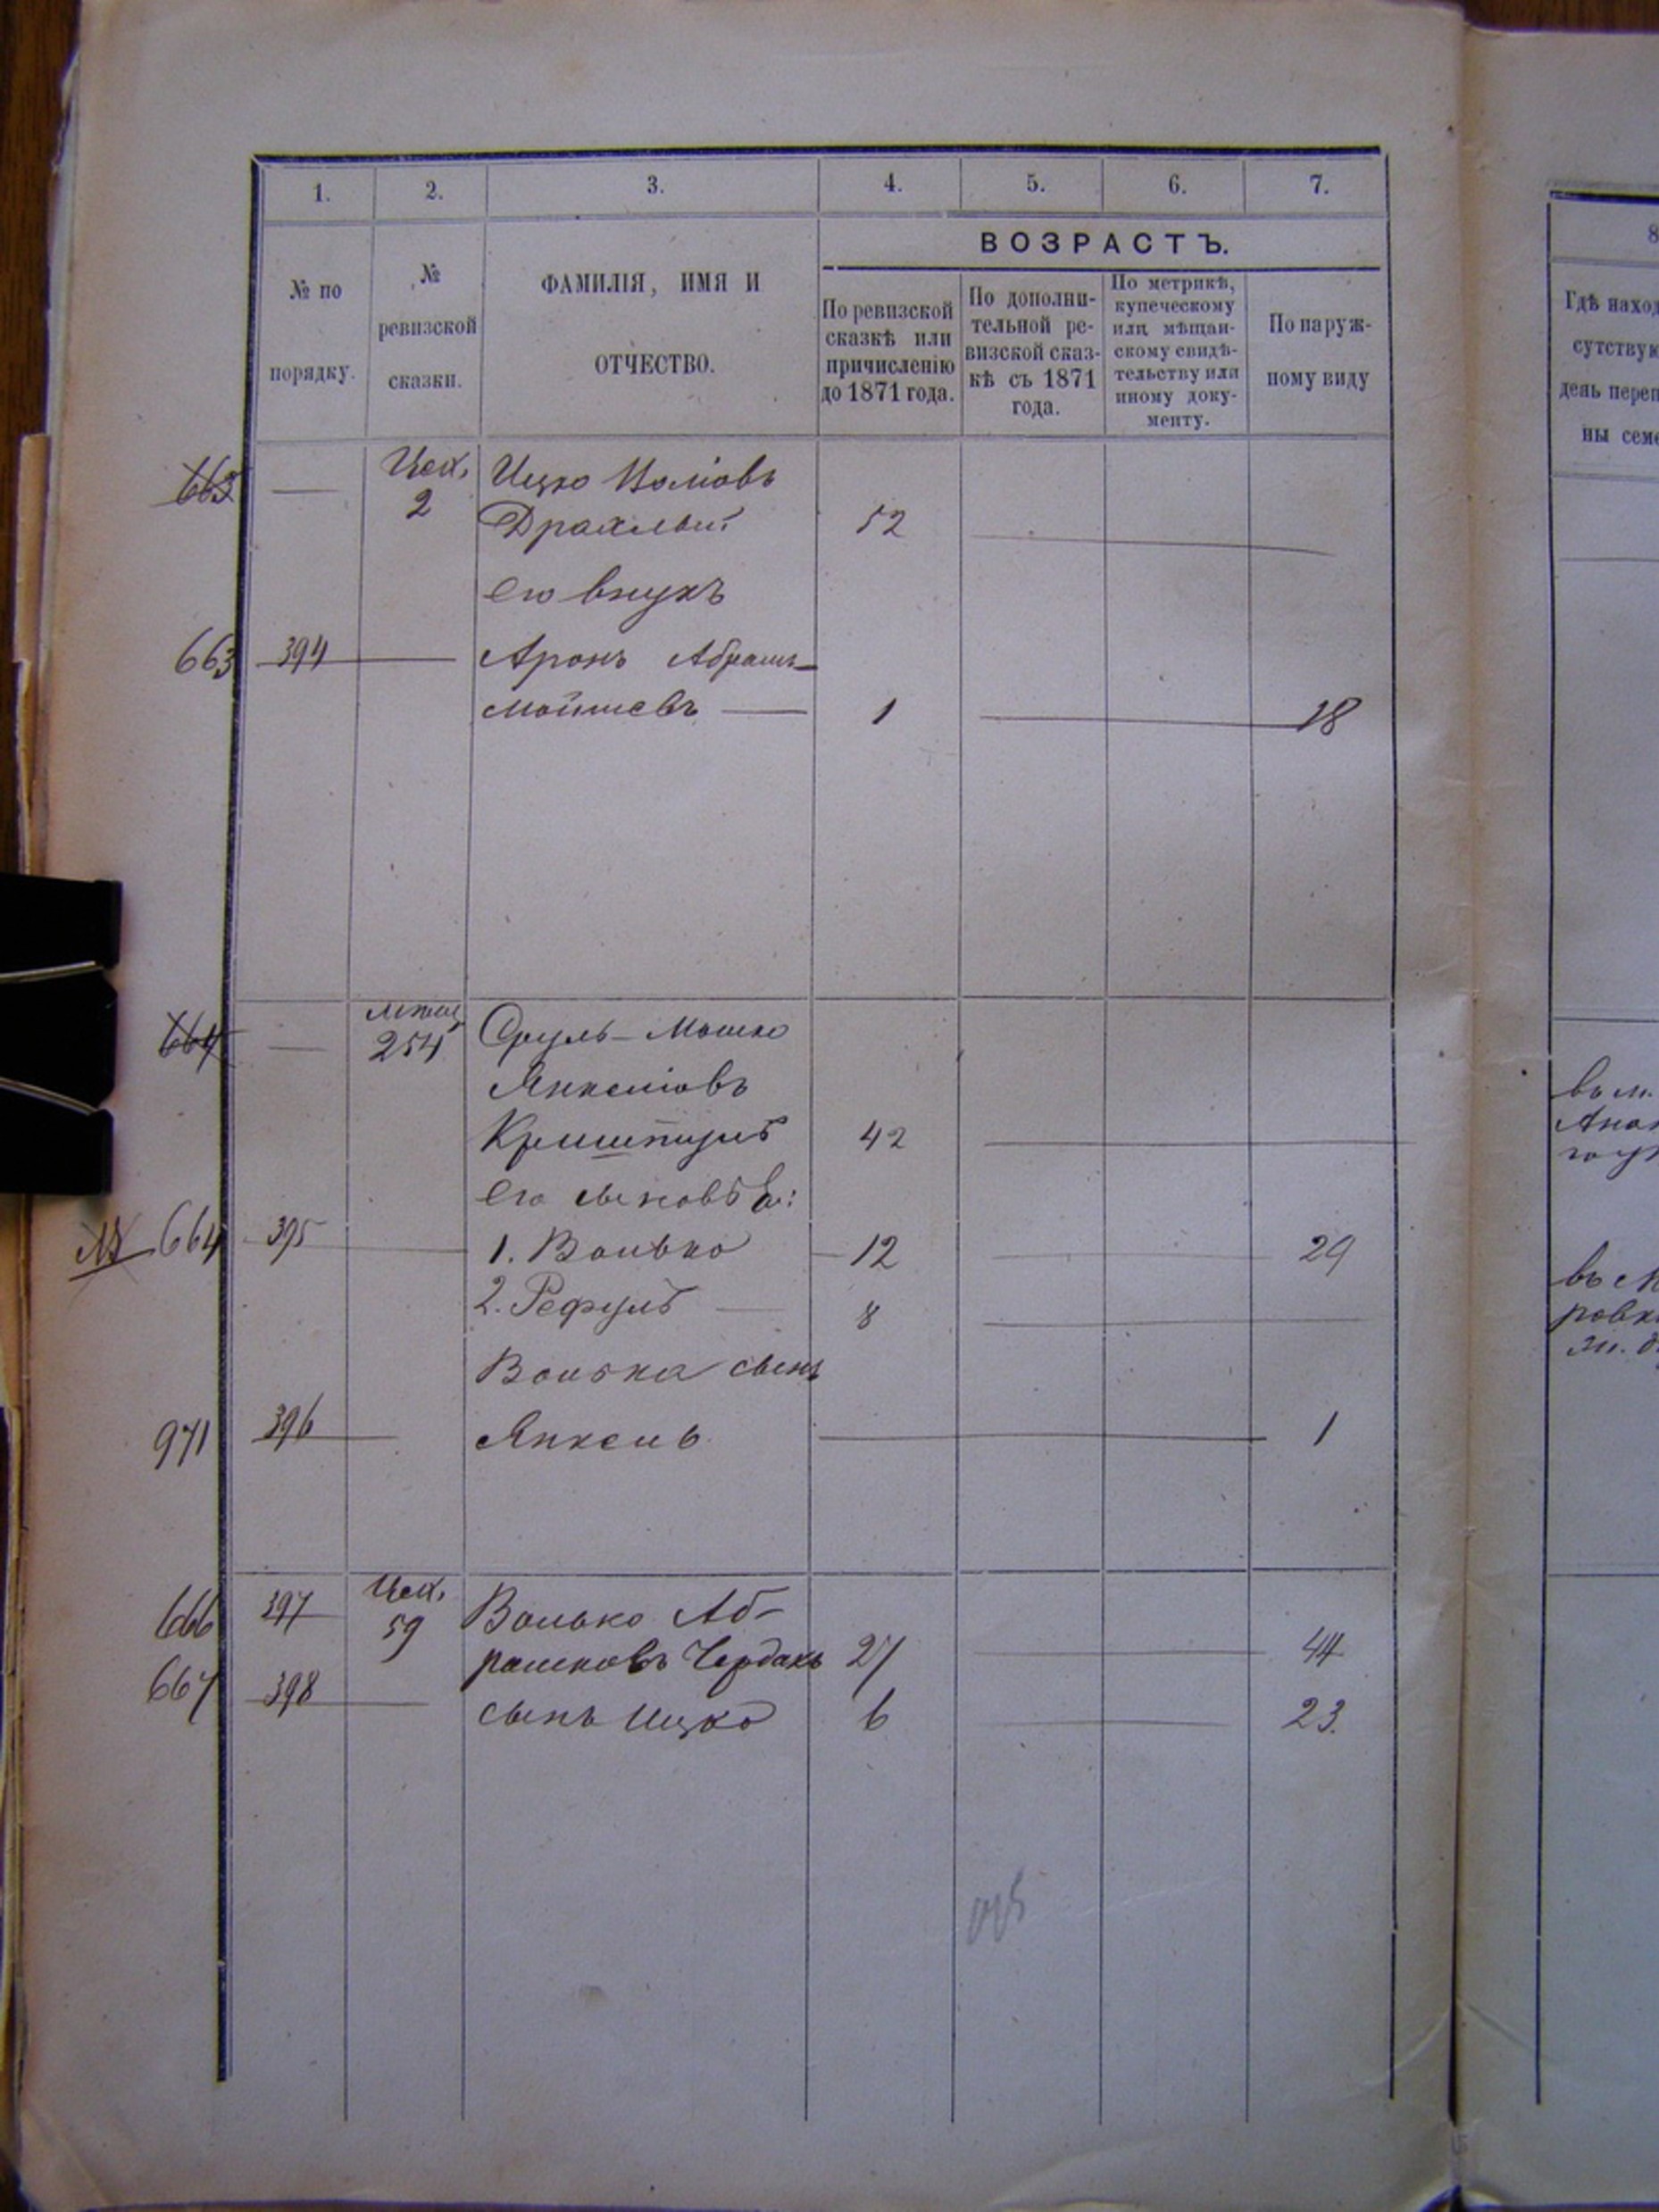 1. 2. 3. 4. 5. 6. 7.
ВОЗРАСТЪ.
№ по
порядку.
№
ревизской
сказки.
ФАМИЛІЯ, ИМЯ И
ОТЧЕСТВО.
По ревизской
сказкѣ или
причисленію
до 1871 года.
По дополни-
тельной ре-
визской сказ-
кѣ съ 1871
года.
По метрикѣ,
купеческому
или мѣщан-
скому свидѣ-
тельству или
иному доку-
менту.
По наруж-
ному виду
8
Гдѣ наход
сутствую
день переп
ны семе
663 — Цех. Ицко
2 Драхлый 52
его внукъ
663 394 Аронъ Абрамъ-
Мойшевъ — 1 18
664 — 254 Сруль-Мошко
Янкеліовъ
42
его сыновья:
664 395 1. Волько 12 29
2. Рефулъ — 8
Волька сынъ
971 396 Янкель 1
666 397 Цех. Волько Аб-
59 рашковъ Чердакъ 27 44
667 398 сынъ Ицко 6 23.
въ м.